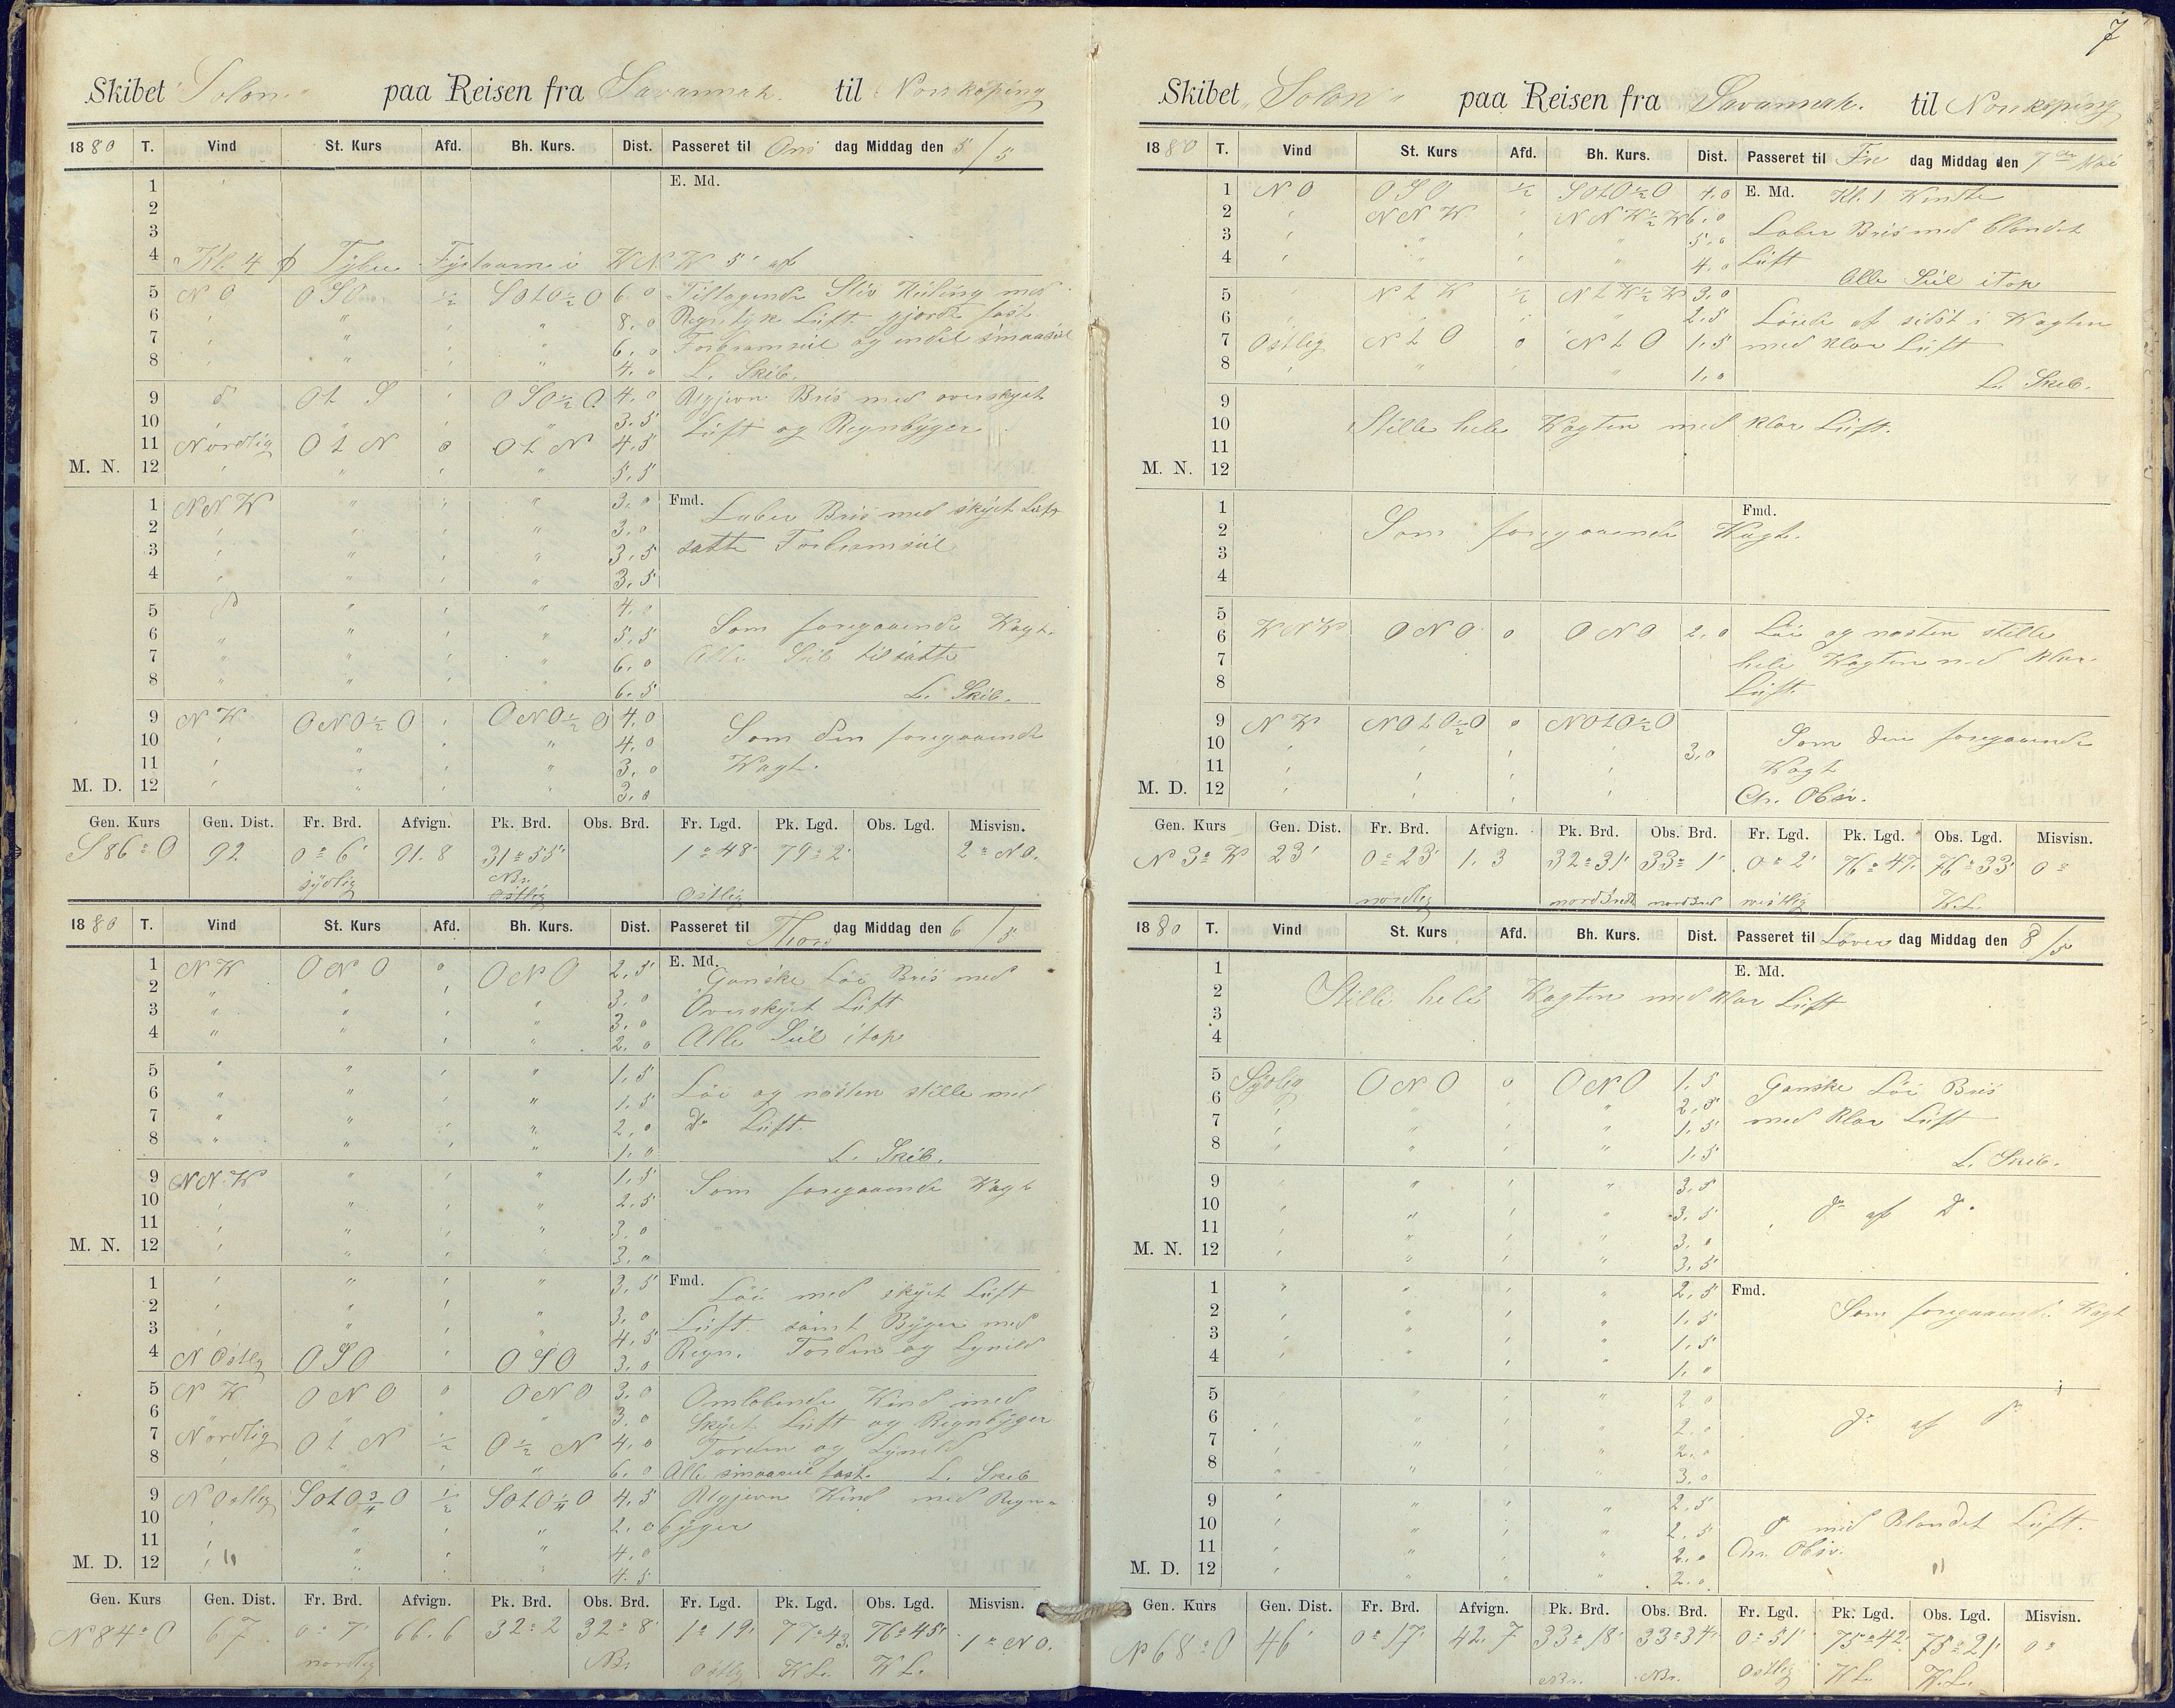 7
Skibet "Solon" paa Reisen fra Savannah. til Norrköping
1880 T. Vind St. Kurs Afd. Bh. Kurs. Dist. Passeret til Ons dag Middag den 5/5
1 E. Md.
2
3
4 Kl. 4 Tybee Fyrtaarn i WNW 5' af
5 NO OSO ½ SOtO½O 6.0 Tiltagende Stiv Kuling med
6 " " " " 8.0 Regntyk Luft gjorde fast
7 " " " " 6.0 Forbramseil og endel smaaseil
8 " " " " 4.0 L. Skib.
9 do OtS " OSO½O 4.0 Ujevn Bris med overskyet
10 " " " " 3.5 Luft og Regnbyger
11 Nordlig OtN 0 OtN 4.5
M. N. 12 " " " " 5.5
1 NNW " " " 3.0 Fmd. Laber Bris med skyet Luft
2 " " " " 3.0
3 " " " " 3.5 satte Forbramseil
4 " " " " 3.5
5 do " " " 4.0
6 " " " " 5.5 Som foregaaende Vagt.
7 " " " " 6.0 Alle Seil tilsatte
8 " " " " 6.5 L. Skib.
9 NW ONO½O " ONO½O 4.0 Som den foregaaende
10 " " " " 4.0
11 " " " " 3.0 Vagt.
M. D. 12 " " " " 3.0
Gen. Kurs Gen. Dist. Fr. Brd. Afvign. Pk. Brd. Obs. Brd. Fr. Lgd. Pk. Lgd. Obs. Lgd. Misvisn.
S86°O 92 0°6' 91.8 31°55' 1°48' 79°2' 2°NO.
sydlig Br. Ostlig
1880 T. Vind St. Kurs Afd. Bh. Kurs. Dist. Passeret til Thors dag Middag den 6/5
1 NW ONO 0 ONO 2.5 E. Md. Ganske Löi Bris med
2 " " " " 3.0 Overskyet Luft
3 " " " " 3.0
4 " " " " 2.0 Alle Seil itop
5 " " " " 1.5
6 " " " " 1.5 Löi og næsten stille med
7 " " " " 2.0 do Luft.
8 " " " " 1.0 L. Skib.
9 NNW " " " 1.5 Som foregaaende Vagt
10 " " " " 2.5
11 " " " " 3.0
M. N. 12 " " " " 3.0
1 " " " " 3.5 Fmd. Löi med skyet Luft
2 " " " " 3.0 Luft. samt Byger med
3 " " " " 4.5
4 N Ostlg OSO " OSO 3.0 Regn. Torden og Lynild
5 NW ONO 0 ONO 3.0 Omlobende Vind med
6 " 3.0 Skyet Luft og Regnbyger
7 Nordlig OtN ½ O½N 4.0 Torden og Lynild
8 " " " " 6.0 Alle smaaseil fast. L. Skib
9 N Ostlig SOtO¾O ½ SOtO¼O 4.5 Ujevn Vind med Regn-
10 " " " " 2.0 byger
11 " " " " 4.0
M. D. 12 " " " " 4.5
Gen. Kurs Gen. Dist. Fr. Brd. Afvign. Pk. Brd. Obs. Brd. Fr. Lgd. Pk. Lgd. Obs. Lgd. Misvisn.
N84°O 67 0°7' 66.6 32°2 32°8' 1°19' 77°43. 76°45' 1°NO.
nordlig Br. Ostlig WL. WL.
Skibet "Solon" paa Reisen fra Savannah. til Norrköping
1880 T. Vind St. Kurs Afd. Bh. Kurs. Dist. Passeret til Fre dag Middag den 7de Mai
1 NO OSO ½ SOtO½O 4.0 E. Md. Kl. 1 Vendte
2 " NNW " NNW½W 6.0
3 " " " " 5.0 Laber Bris med blandet
4 " " " " 4.0 Luft
5 NtW ½ NtW½W 3.0 Alle Seil itop
6 " " 2.5 Löiede af sidst i Vagten
7 Ostlig NtO 0 NtO 1.5 med klar Luft
8 " " " " 1.0 L. Skib.
9
10 Stille hele Vagten med klar Luft.
11
M. N. 12
1 Fmd.
2 Som foregaaende Vagt.
3
4
5
6 WNW ONO 0 ONO 2.0 Löi og næsten stille
7 hele Vagten med klar
8 Luft.
9 NW NOtO½O 0 NOtO½O
10 " " " " 3.0 Som den foregaaende
11 " " " " Vagt
M. D. 12 " " " " Chr. Obsv.
Gen. Kurs Gen. Dist. Fr. Brd. Afvign. Pk. Brd. Obs. Brd. Fr. Lgd. Pk. Lgd. Obs. Lgd. Misvisn.
N3°W 23' 0°23' 1.3 32°31' 33°1' 0°2' 76°47' 76°33' 0°
nordlig westlig W.L.
1880 T. Vind St. Kurs Afd. Bh. Kurs. Dist. Passeret til Löver dag Middag den 8/5
1 E. Md.
2 Stille hele Vagten med klar Luft
3
4
5 Sydlig ONO 0 ONO 1.5 Ganske Löi Bris
6 " " " " 2.5
7 " " " " 1.5 med klar Luft
8 " " " " 1.5 L. Skib.
9 " " " " 3.5
10 " " " " 3.5 do af do.
11 " " " " 3.0
M. N. 12 " " " " 3.5
1 " " " " 2.5 Fmd.
2 " " " " 1.5 Som foregaaende Vagt
3 " " " " 1.5
4 " " " " 1.0
5 " " " " 2.0
6 " " " " 2.0 do af do
7 " " " " 2.0
8 " " " " 3.0
9 " " " " 2.5
10 " " " " 2.5 do med Blandet Luft.
11 " " " " 2.0 Chr. Obsv.
M. D. 12 " " " " 2.0
Gen. Kurs Gen. Dist. Fr. Brd. Afvign. Pk. Brd. Obs. Brd. Fr. Lgd. Pk. Lgd. Obs. Lgd. Misvisn.
N68°O 46' 0°17' 42.7 33°18' 33°34' 0°51' 75°42' 75°21' 0°
Br. Br. Ostlig WL. W.L.